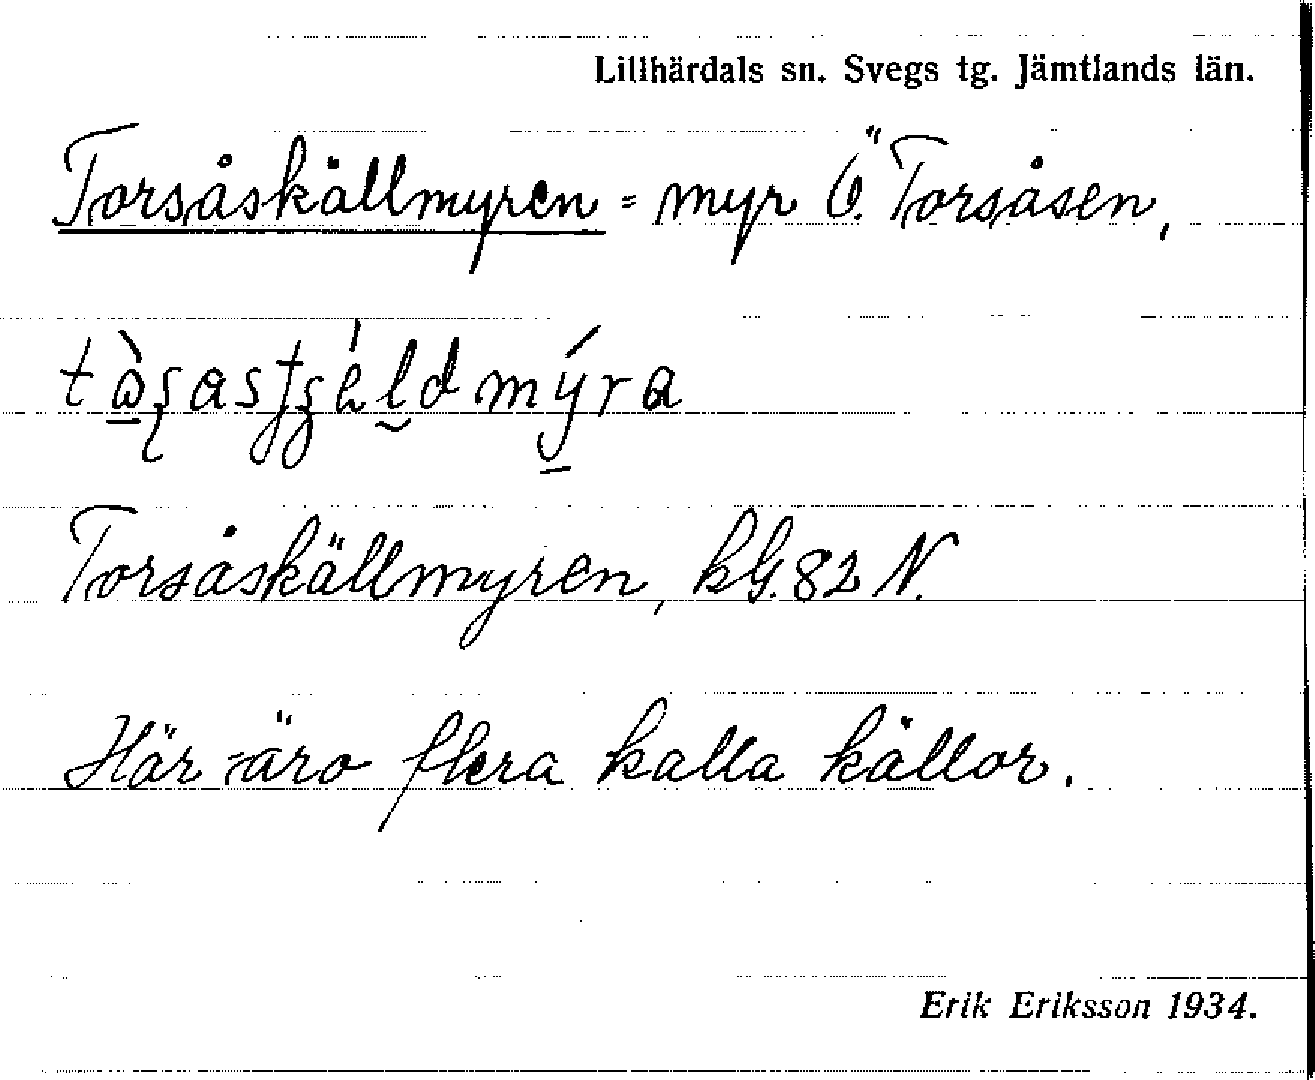 Lillhärdals sn. Svegs tg. Jämtlands län.
Torsåskällmyren = myr Ö. Torsåsen,
Torsåskällmyren, kG. 82 N.
Här äro flera kalla källor.
Erik Eriksson 1934.